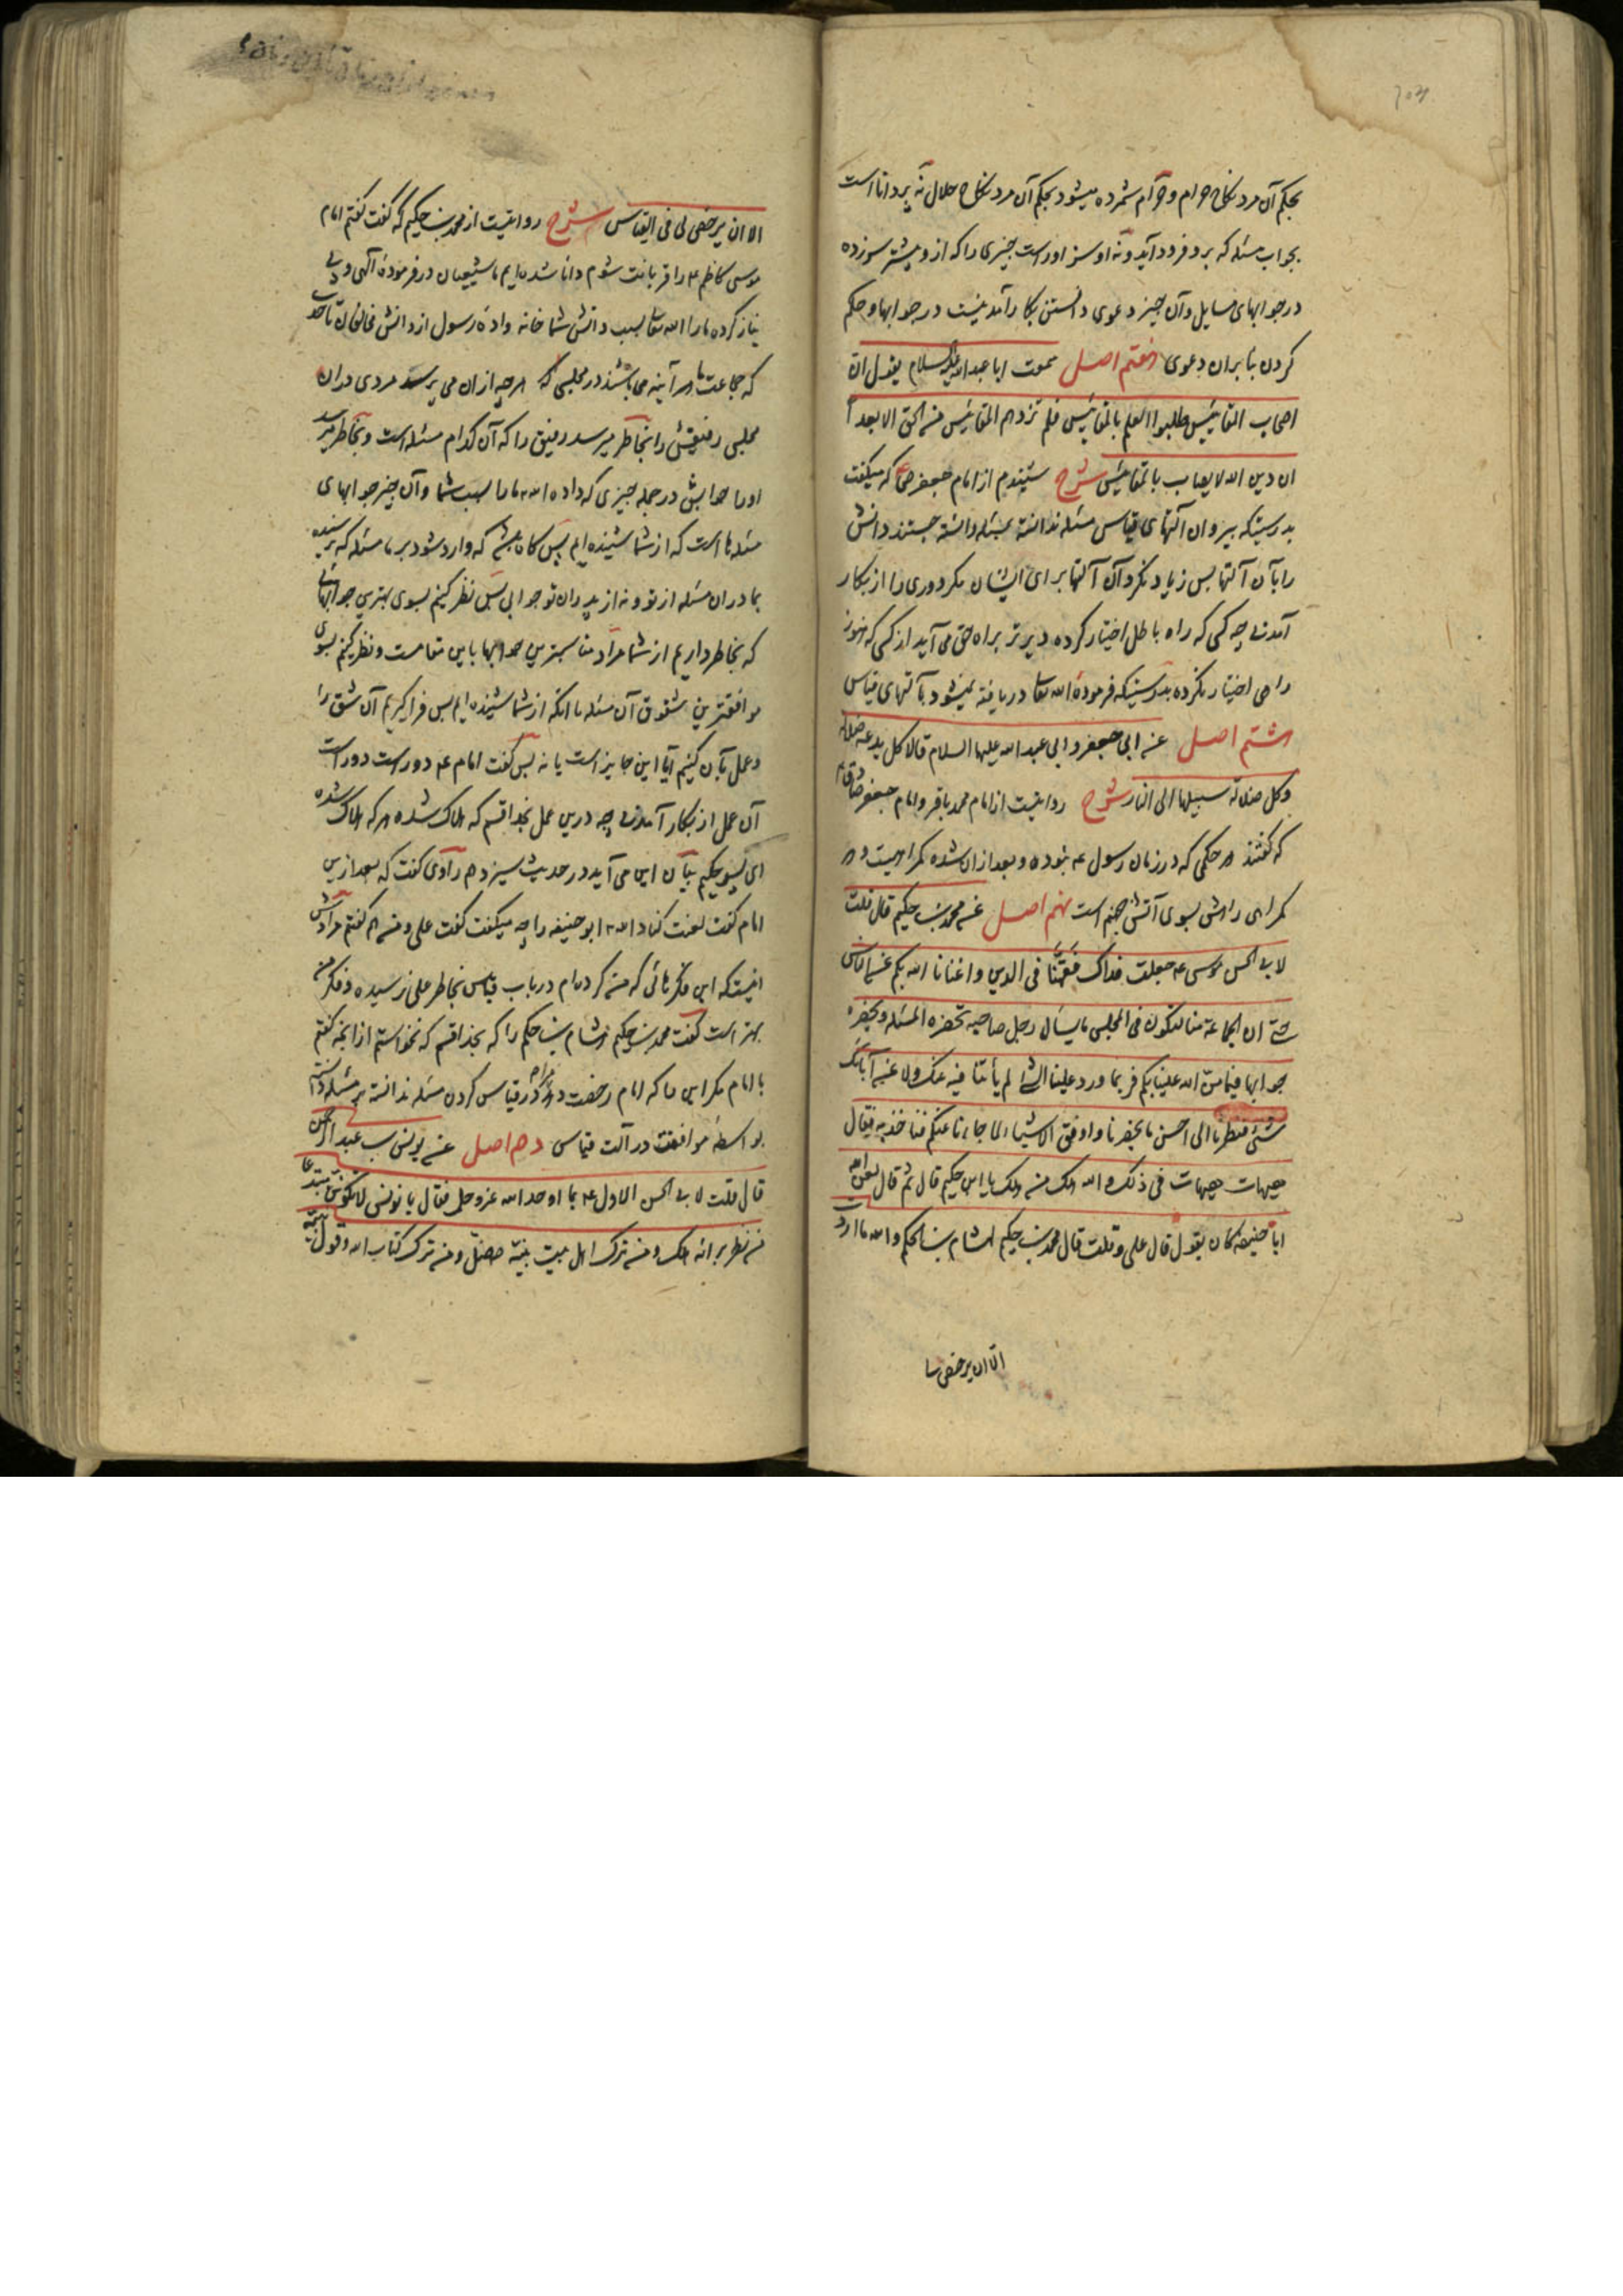 بحکم آن مرد نکاح حرام و حرام شمرده میشود بحکم آن مرد نکاح حلال نه پر دانا است
بجواب مسئله که برو فرود آید و نه او سزاوار است چیزی را که ازو پیشتر سرزده
در جوابهای مسایل و آن چیز دعوی دانستن بکار آمدنیست در جوابها و حکم
کردن بنابران دعوی هفتم اصل سمعت ابا عبد الله علیه السلام یقول ان
اصحاب المقائیس طلبوا العلم بالمقائیس فلم تزدهم المقائیس من الحق الا بعدا
ان دین الله لا یصاب بالمقائیس شرح شنیدم از امام جعفر صادق ع که میگفت
بدرستیکه پیروان آلتهای قیاس مسئله ندانسته بمسئله دانسته جستند دانش
را بآن آلتها پس زیاد نکرد آن آلتها برای ایشان مگر دوری را از بکار
آمدنی چه کسی که راه باطل اختیار کرده دیرتر براه حق می آید از کسی که هنوز
راهی اختیار نکرده بدرستیکه فرمودهٔ الله تعالی دریافته نمیشود بآلتهای قیاس
هشتم اصل عن ابی جعفر و ابی عبد الله علیهما السلام قالا کل بدعة ضلالة
و کل ضلالة سبیلها الی النار شرح روایتست از امام محمد باقر و امام جعفر صادق ع
که گفتند هر حکمی که در زمان رسول ع نبوده و بعد از ان شده گمراهیست و هر
گمراهی راهش بسوی آتش جهنم است نهم اصل عن محمد بن حکیم قال قلت
لابی الحسن موسی ع جعلت فداک فقّهنا فی الدین و اغنانا الله بکم عن الناس
حتی ان الجماعة منا لتکون فی المجلس ما یسأل رجل صاحبه تحضره المسئله و یحضره
جوابها فیما منّ الله علینا بکم فربما ورد علینا الشئ لم یأتنا فیه عنک و لا عن آبائک
شئ فنظرنا الی احسن ما یحضرنا و اوفق الاشیاء لما جاءنا عنکم فنأخذ به فقال
هیهات هیهات فی ذلک و الله هلک من هلک یا ابن حکیم قال ثم قال لعن الله
ابا حنیفه کان یقول قال علی و قلت قال محمد بن حکیم لهشام بن الحکم و الله ما اردت
الا ان یرخص لی فی القیاس شرح روایتست از محمد بن حکیم که گفت گفتم امام
موسی کاظم ع را قربانت شوم دانا شده ایم ما شیعیان در فرمودهٔ الهی و بی
نیاز کرده ما را الله تعالی بسبب دانش شما خانه وادهٔ رسول از دانش مخالفان تا حد
که جماعت ما هر آینه می باشند در مجلسی که هر چه از ان می پرسد مردی در ان
مجلس رفیقش را بخاطر میرسد رفیق را که آن کدام مسئله است و بخاطر میرسد
او را جوابش در جمله چیزی که داده الله ما را بسبب شما و آن چیز جوابهای
مسئله ها است که از شما شنیده ایم پس گاه باشد که وارد شود بر ما مسئله که نرسیده
بما در ان مسئله از تو و نه از پدران تو جوابی پس نظر کنیم بسوی بهترین جوابهائی
که بخاطر داریم از شما مراد مناسبترین جوابها باین مقامست و نظر کنیم بسوی
موافقترین شقوق آن مسئله با انکه از شما شنیده ایم پس فرا گیریم آن شق را
و عمل بآن کنیم آیا این جایز است یا نه پس گفت امام ع دور است دور است
آن عمل از بکار آمدنی چه درین عمل بخدا قسم که هلاک شده هر که هلاک شده
ای پسر حکیم بیان این می آید در حدیث سیزدهم راوی گفت که بعد ازین
امام گفت لعنت کناد الله ابو حنیفه را چه میگفت گفت علی و من هم گفتم مرادش
اینستکه این فکرهائی که من کرده ام در باب قیاس بخاطر علی نرسیده و فکر من
بهتر است گفت محمد بن حکیم هشام بن حکم را که بخدا قسم که نخواستم از انچه گفتم
با امام مگر این را که امام رخصت دهد مرا در قیاس کردن مسئله ندانسته بر مسئله دانسته
بواسطهٔ موافقت در آلت قیاس دهم اصل عن یونس بن عبد الرحمن
قال قلت لابی الحسن الاول ع بما اوحد الله عز و جل فقال یا یونس لا تکونن مبتدعا
من نظر برائه هلک و من ترک اهل بیت نبیه ضل و من ترک کتاب الله و قول نبیه
الا ان یرخص لنا